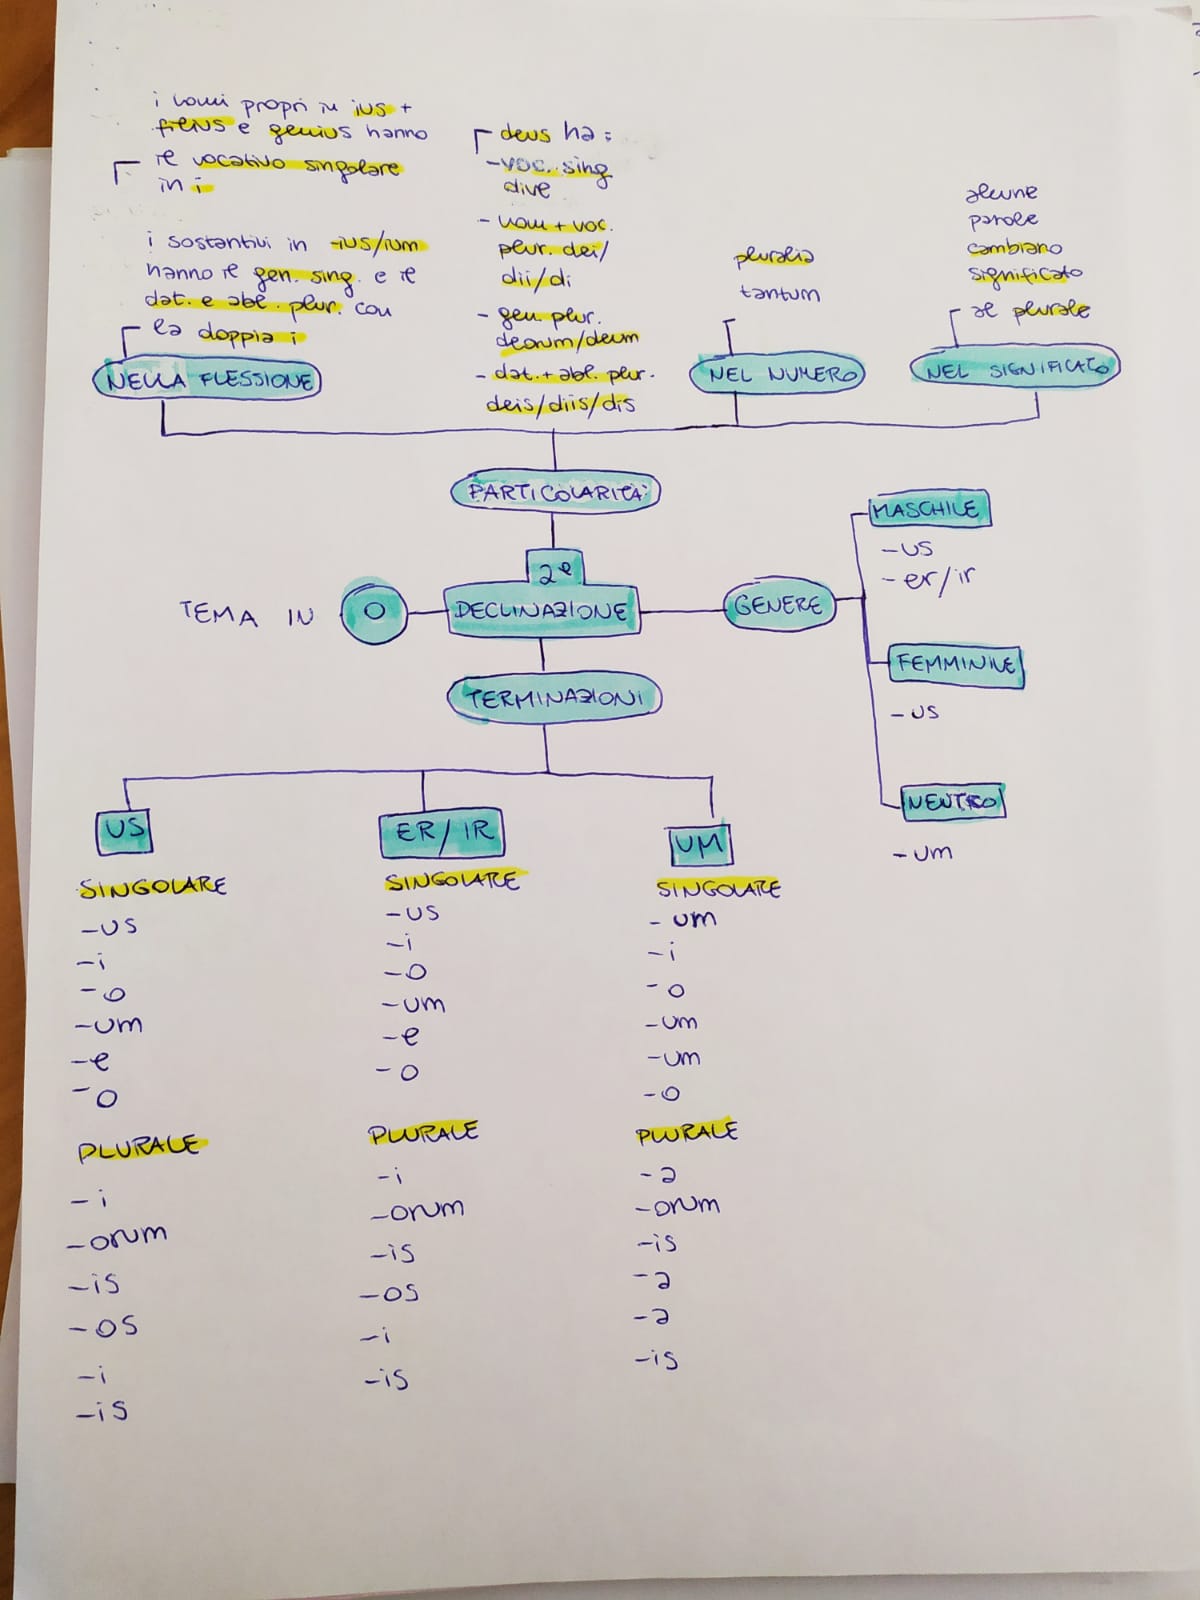 i nomi propri in ius +
filius e genius hanno
il vocativo singolare
in i
i sostantivi in -ius/ium
hanno il gen. sing. e il
dat. e abl. plur. con
la doppia i
NELLA FLESSIONE
deus ha:
- voc. sing
dive
- nom + voc.
plur. dei/
dii/di
- gen. plur.
deorum/deum
- dat. + abl. plur.
deis/diis/dis
pluralia
tantum
NEL NUMERO
alcune
parole
cambiano
significato
al plurale
NEL SIGNIFICATO
PARTICOLARITÀ
2ª
DECLINAZIONE
TEMA IN O
GENERE
MASCHILE
-us
-er/ir
FEMMINILE
-us
NEUTRO
-um
TERMINAZIONI
US
SINGOLARE
-us
-i
-o
-um
-e
-o
PLURALE
-i
-orum
-is
-os
-i
-is
ER/IR
SINGOLARE
-us
-i
-o
-um
-e
-o
PLURALE
-i
-orum
-is
-os
-i
-is
UM
SINGOLARE
-um
-i
-o
-um
-um
-o
PLURALE
-a
-orum
-is
-a
-a
-is